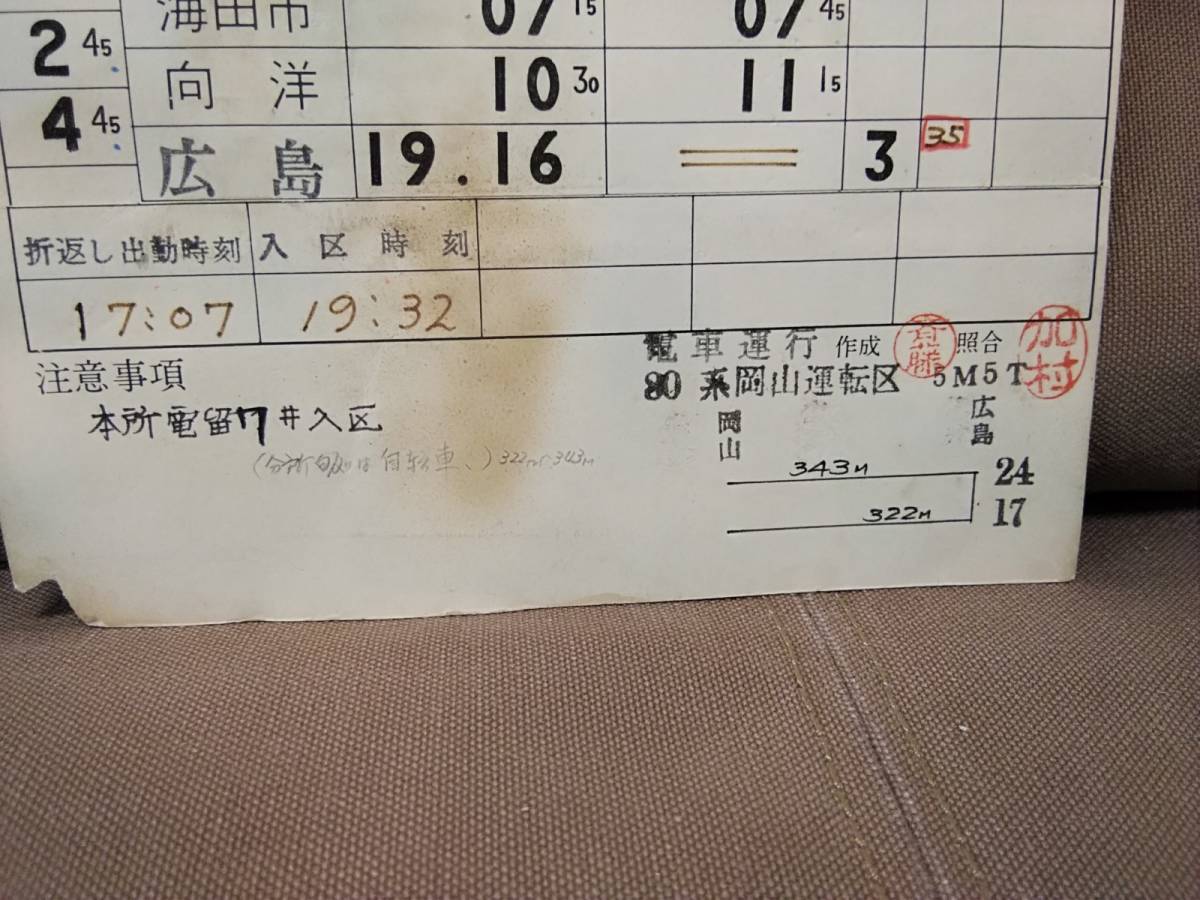 海田市 07 15 07 45
2 45
向洋 10 30 11 15
4 45
広島 19.16 3 35
折返し出勤時刻 入区時刻
17:07 19:32
電車運行 作成 照合 加村
注意事項
80系岡山運転区 5M5T
本所電留7井入区
岡山 広島
322M 343M
343M 24
322M 17